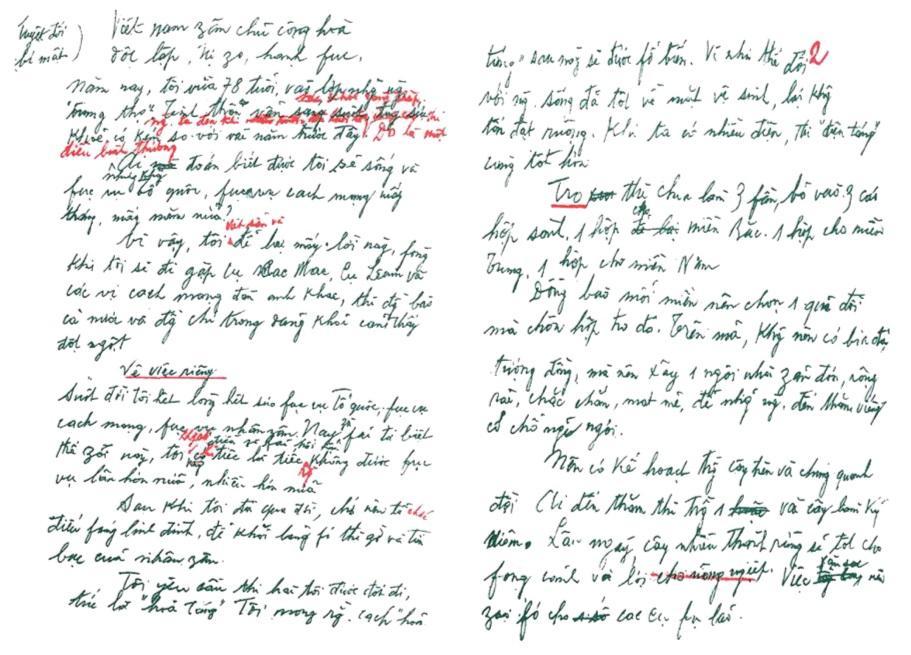 Tuyệt đối
bí mật
Việt nam zân chủ cộng hoà
độc lập, tự zo, hạnh fúc,
Năm nay, tôi vừa 78 tuổi, vào lớp những ng.
"trung thọ". Tinh thần
Khoẻ có kém so với vài năm trước đây. Đó là một
điều bình thường
Ai đoán biết được tôi sẽ sống và
fục vụ tổ quốc, fục vụ cách mạng mấy
tháng, mấy năm nữa?
viết sẵn vài
Vì vậy, tôi để lại mấy lời này, fòng
khi tôi sẽ đi gặp cụ Các Mác, cụ Lênin và
các vị cách mạng đàn anh khác, thì đồng bào
cả nước và đồng chí trong đảng khỏi cảm thấy
đột ngột.
Về việc riêng
Suốt đời tôi hết lòng hết sức fục vụ Tổ quốc, fục vụ
cách mạng, fục vụ nhân zân. Nay fải từ biệt
thế zới này, tôi tiếc là tiếc không được fục
vụ lâu hơn nữa, nhiều hơn nữa
Sau khi tôi đã qua đời, chớ nên tổ chức
điếu fúng linh đình, để khỏi lãng fí thì zờ và tiền
bạc của nhân zân.
Tôi yêu cầu thi hài tôi được đốt đi,
tức là "hoả táng". Tôi mong rằng cách "hoả
2
táng" sau này sẽ được fổ biến. Vì như thế đối
với ng. sống đã tốt về mặt vệ sinh, lại không
tốn đất ruộng. Khi ta có nhiều điện, thì "điện táng"
càng tốt hơn
Tro thì chia làm 3 fần, bỏ vào 3 cái
hộp sành, 1 hộp cho miền Bắc. 1 hộp cho miền
Trung, 1 hộp cho miền Nam
Đồng bào mỗi miền nên chọn 1 quả đồi
mà chôn hộp tro đó. Trên mả, không nên có bia đá
tượng đồng, mà nên xây 1 ngôi nhà zản đơn, rộng
rãi, chắc chắn, mát mẻ, để những ng. đến thăm viếng
có chỗ nghỉ ngơi.
Nên có kế hoạch trồng cây trên và chung quanh
đồi. Ai đến thăm thì trồng 1 vài cây làm kỷ
niệm. Lâu ngày, cây nhiều thành rừng sẽ tốt cho
fong cảnh và lợi cho nông nghiệp. Việc săn sóc nên
zao fó cho các cụ fụ lão.